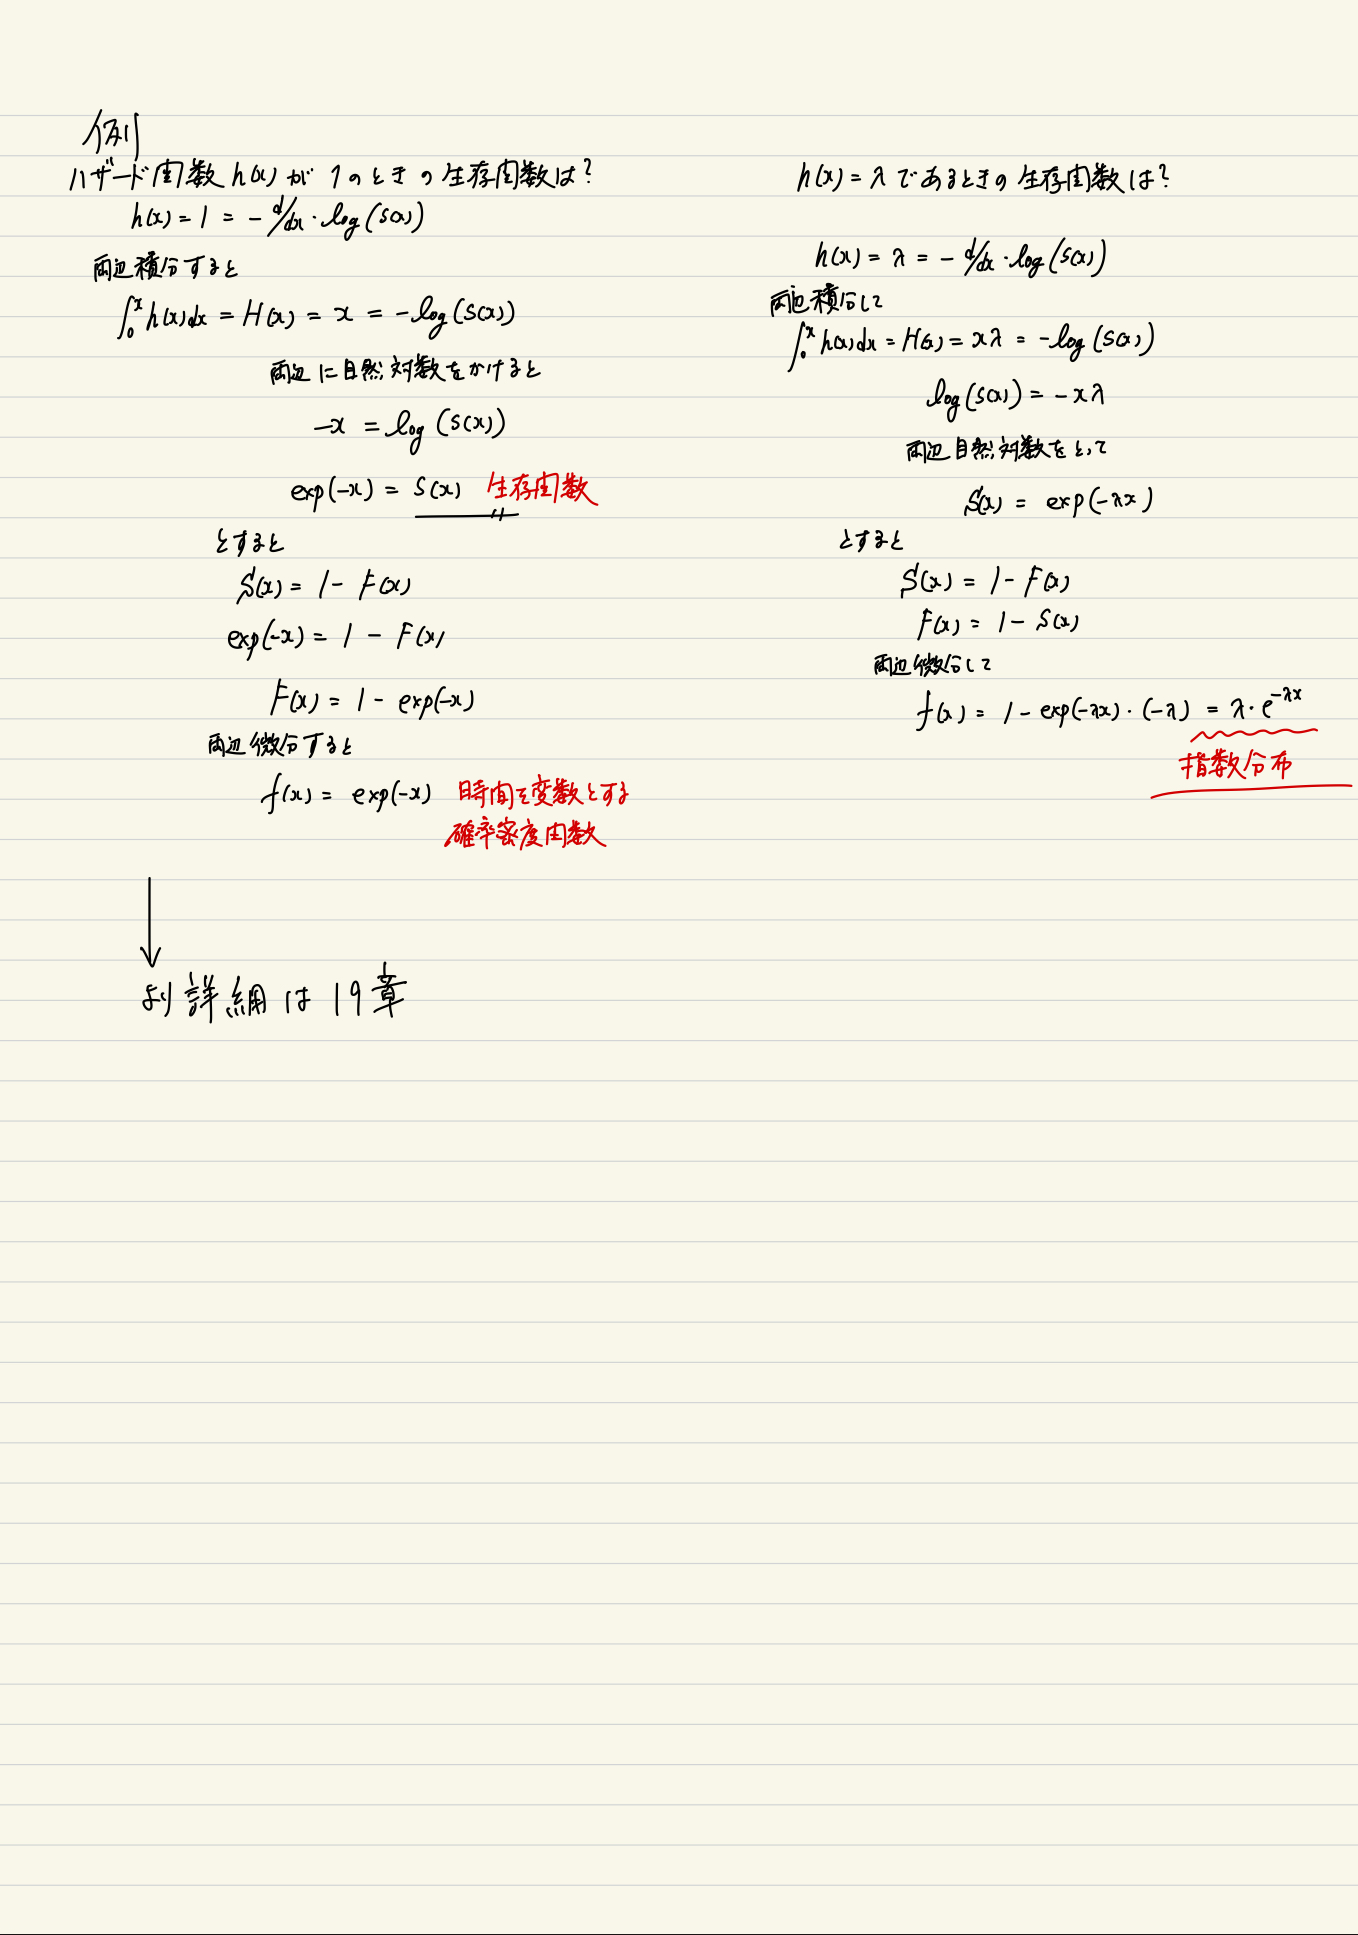 例
ハザード関数 h(x) が 1 のときの生存関数は?
h(x) = 1 = - d/dx・log(S(x))
両辺積分すると
∫₀ˣ h(x)dx = H(x) = x = -log(S(x))
両辺に自然対数をかけると
-x = log(S(x))
exp(-x) = S(x) 生存関数
とすると
S(x) = 1 - F(x)
exp(-x) = 1 - F(x)
F(x) = 1 - exp(-x)
両辺微分すると
f(x) = exp(-x) 時間を変数とする
確率密度関数
↓
より詳細は19章
h(x) = λ であるときの生存関数は?
h(x) = λ = - d/dx・log(S(x))
両辺積分して
∫₀ˣ h(x)dx = H(x) = xλ = -log(S(x))
log(S(x)) = -xλ
両辺自然対数をとって
S(x) = exp(-λx)
とすると
S(x) = 1 - F(x)
F(x) = 1 - S(x)
両辺微分して
f(x) = 1 - exp(-λx)・(-λ) = λ・e^-λx
指数分布